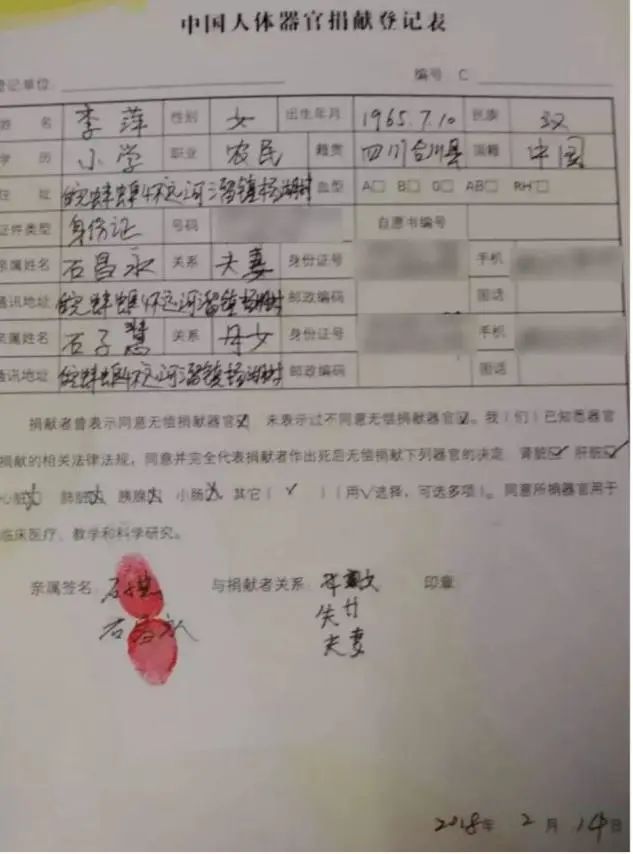 中国人体器官捐献登记表
登记单位: 编号 C
姓 名 李萍 性别 女 出生年月 1965.7.10 民族 汉
学 历 小学 职业 农民 籍贯 四川合川县 国籍 中国
住 址 皖蚌埠怀远河溜镇杨湖村 血型 A□ B□ O□ AB□ RH□
证件类型 身份证 号码 自愿书编号
亲属姓名 石昌永 关系 夫妻 身份证号 手机
通讯地址 皖蚌埠怀远河溜镇杨湖村 邮政编码 固话
亲属姓名 石子慧 关系 母女 身份证号 手机
通讯地址 皖蚌埠怀远河溜镇杨湖村 邮政编码 固话
捐献者曾表示同意无偿捐献器官☑ 未表示过不同意无偿捐献器官☑。我(们)已知悉器官
捐献的相关法律法规,同意并完全代表捐献者作出死后无偿捐献下列器官的决定 肾脏☑肝脏☑
心脏 肺脏 胰腺 小肠 其它(√)(用√选择,可选多项)。同意所捐器官用于
临床医疗、教学和科学研究。
亲属签名: 与捐献者关系: 印章:
石昌永
夫妻
2018年 2 月 14日